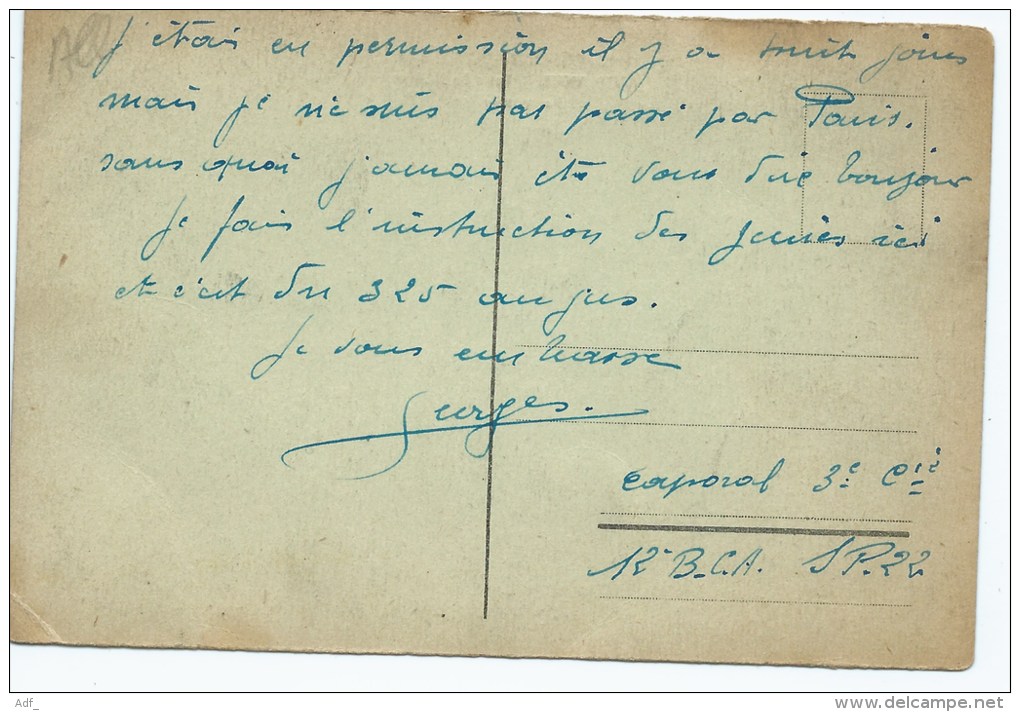 J'étais en permission il y a huit jours
mais je ne suis pas passé par Paris.
sans quoi j'aurais été vous dire bonjour
Je fais l'instruction des jeunes ici
et c'est du 325 au jus.
Je vous embrasse
Georges.
caporal 3e Cie
12e B.C.A. SP.22
Adf_
www.delcampe.net